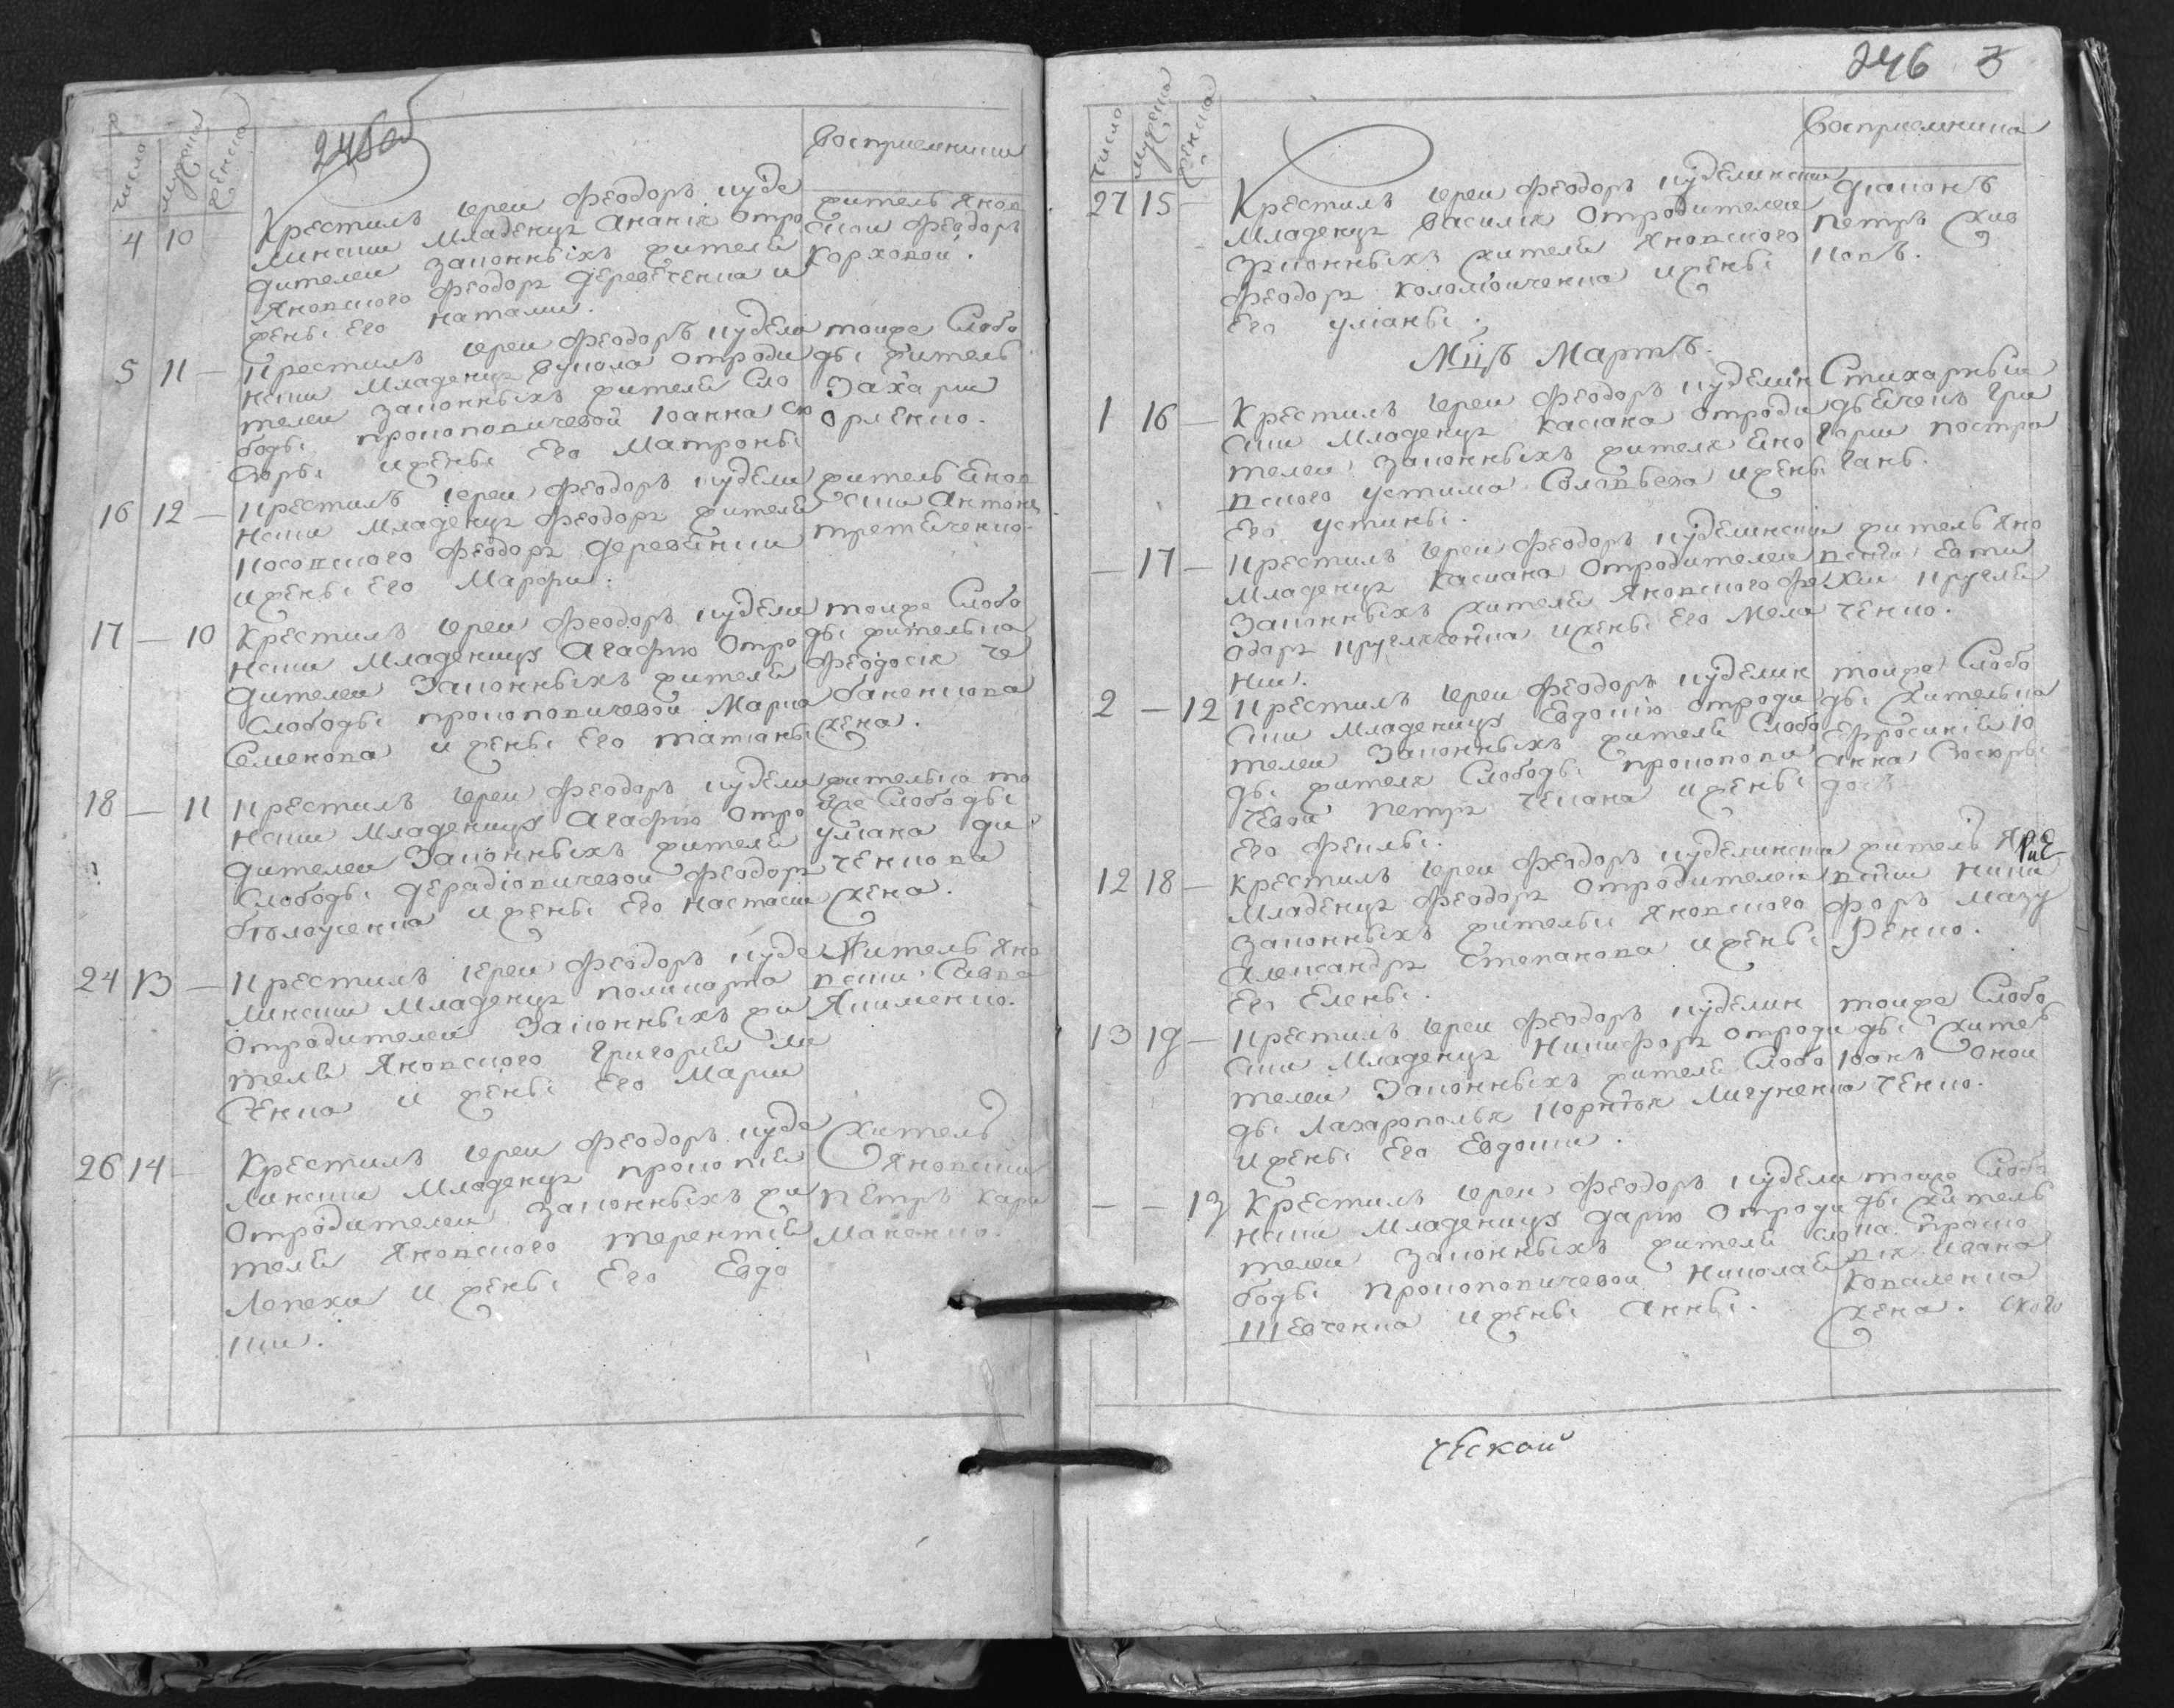 245об
число
мужска
женска
Восприемники
4 10
Крестилъ іереи Феодоръ куде
линскии Младенца Ананія Отро
дителеи законныхъ жителей
Яновского Феодора Деревеченка и
жены Его Наталии.
житель Янов
скои Феодоръ
Корховой.
5 11 —
Крестилъ іереи Феодоръ кудели
нскии Младенца Вукола отроди
телеи законныхъ жителей Сло
боды прокоповичевой Іоанна Ск
оры и жены Его Матроны
тоиже Слобо
ды житель
Захарии
Орленко.
16 12 —
Крестилъ іереи Феодоръ кудели
нскии Младенца Феодора жителей
Носовского Феодора
и жены Его Марфы.
житель Янов
скии Антонъ
третеченко.
17 — 10
Крестилъ іереи Феодоръ кудели
нскии Младеницу Агафию Отро
дителеи Законныхъ жителей
Слободы прокоповичевой Марка
Семенова и жены Его татианы
тоиже Слобо
ды жителька
Феодосия че
баненкова
жена.
18 — 11
Крестилъ іереи Феодоръ кудели
нскии Младеницу Агафию Отро
дителеи Законныхъ жителей
Слободы Феодора
и жены Его Настасии
жителька то
еже Слободы
улиана ди
ченкова
жена.
24 13 —
Крестилъ іереи Феодоръ куде
линскии Младенца поликарпа
Отродителей Законныхъ жи
телей Яновского Григорией ли
сченка и жены Его Марии
Житель Яно
вскии Савва
Якименко.
26 14 —
Крестилъ іереи Феодоръ куде
линскии Младенца прокопія
Отродителеи законныхъ жи
телей Яновского терентій
Лепехи и жены Его Евдо
кии.
Житель
Яновскии
Петръ Кара
маненко.
246 3
число
мужска
женска
Восприемника
27 15 —
Крестилъ іереи Феодоръ куделинскии
Младенца Василія Отродителеи
Законныхъ жителей Яновского
Феодора Коломойченка и жены
Его улианы.
Диаконъ
Петръ Жив
ковъ.
Мцъ Мартъ.
1 16 —
Крестилъ іереи Феодоръ куделин
скии Младенца Касиана Отроди
телеи Законныхъ жителя Яно
вского Устима Соловьева и жены
Его Устины.
Стихарныи
дьячекъ Гри
горіи постри
ганъ.
— 17 —
Крестилъ іереи Феодоръ куделинскии
Младенца Касиана Отродителеи
Законныхъ жителей Яновского Фе
одора кругляченка и жены Его Мела
нии.
житель Яно
вскии Евти
хии кругля
ченко.
2 — 12
Крестилъ іереи Феодоръ куделин
скии Младеницу Евдокію отроди
телеи Законныхъ жителей Слобо
ды жителя Слободы прокопови
чевой Петра Чепана и жены
Его Феклы.
тоиже Слобо
ды жителька
ефросинія Іо
анна
12 18 —
Крестилъ іереи Феодоръ куделинскии
Младенца Феодора Отродителеи
законныхъ жительи Яновского
Александра Степанова и жены
Его Елены.
житель Яно
вскии Ники
форъ Мазу
ренко.
13 19 —
Крестилъ іереи Феодоръ куделин
скии Младенца Никифора отроди
телеи Законныхъ жителей Слобо
ды Лазарополья Корнія Лигуненка
и жены Его Евдокии.
тоиже Слобо
ды житель
Іоанъ Оноп
ченко.
— — 13
Крестилъ іереи Феодоръ кудели
нскии Младеницу Дарію Отроди
телеи законныхъ жителей сло
боды прокоповичевои Николай
Шевченка и жены Анны.
тоиже Слобо
ды житель
ка Проко
вія ивана
Коваленка
жена. ского
ческой